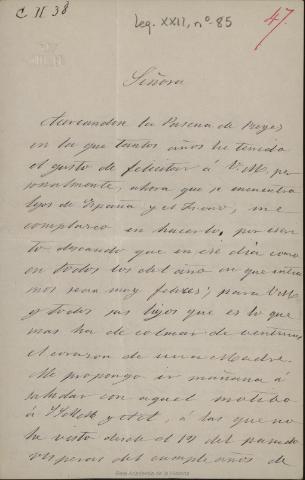 C II 38
Leg. XXII, nº 85
47.
Señora
Acercandose la Pascua de Reyes
en la que tantos años he tenido
el gusto de felicitar á V.M. per
sonalmente, ahora que se encuentra
lejos de España y el Trono, me
complazco en hacerlo por escri
to deseando que en ese dia como
en todos los del año en que entra
mos sean muy felices, para V.M.
y todos sus hijos que es lo que
mas ha de colmar de ventura
el corazon de una Madre.
Me propongo ir mañana á
saludar con aquel motibo
á SSMM y AA, á las que no
he visto desde el 19 del pasado
visperas del cumple años de
Real Academia de la Historia